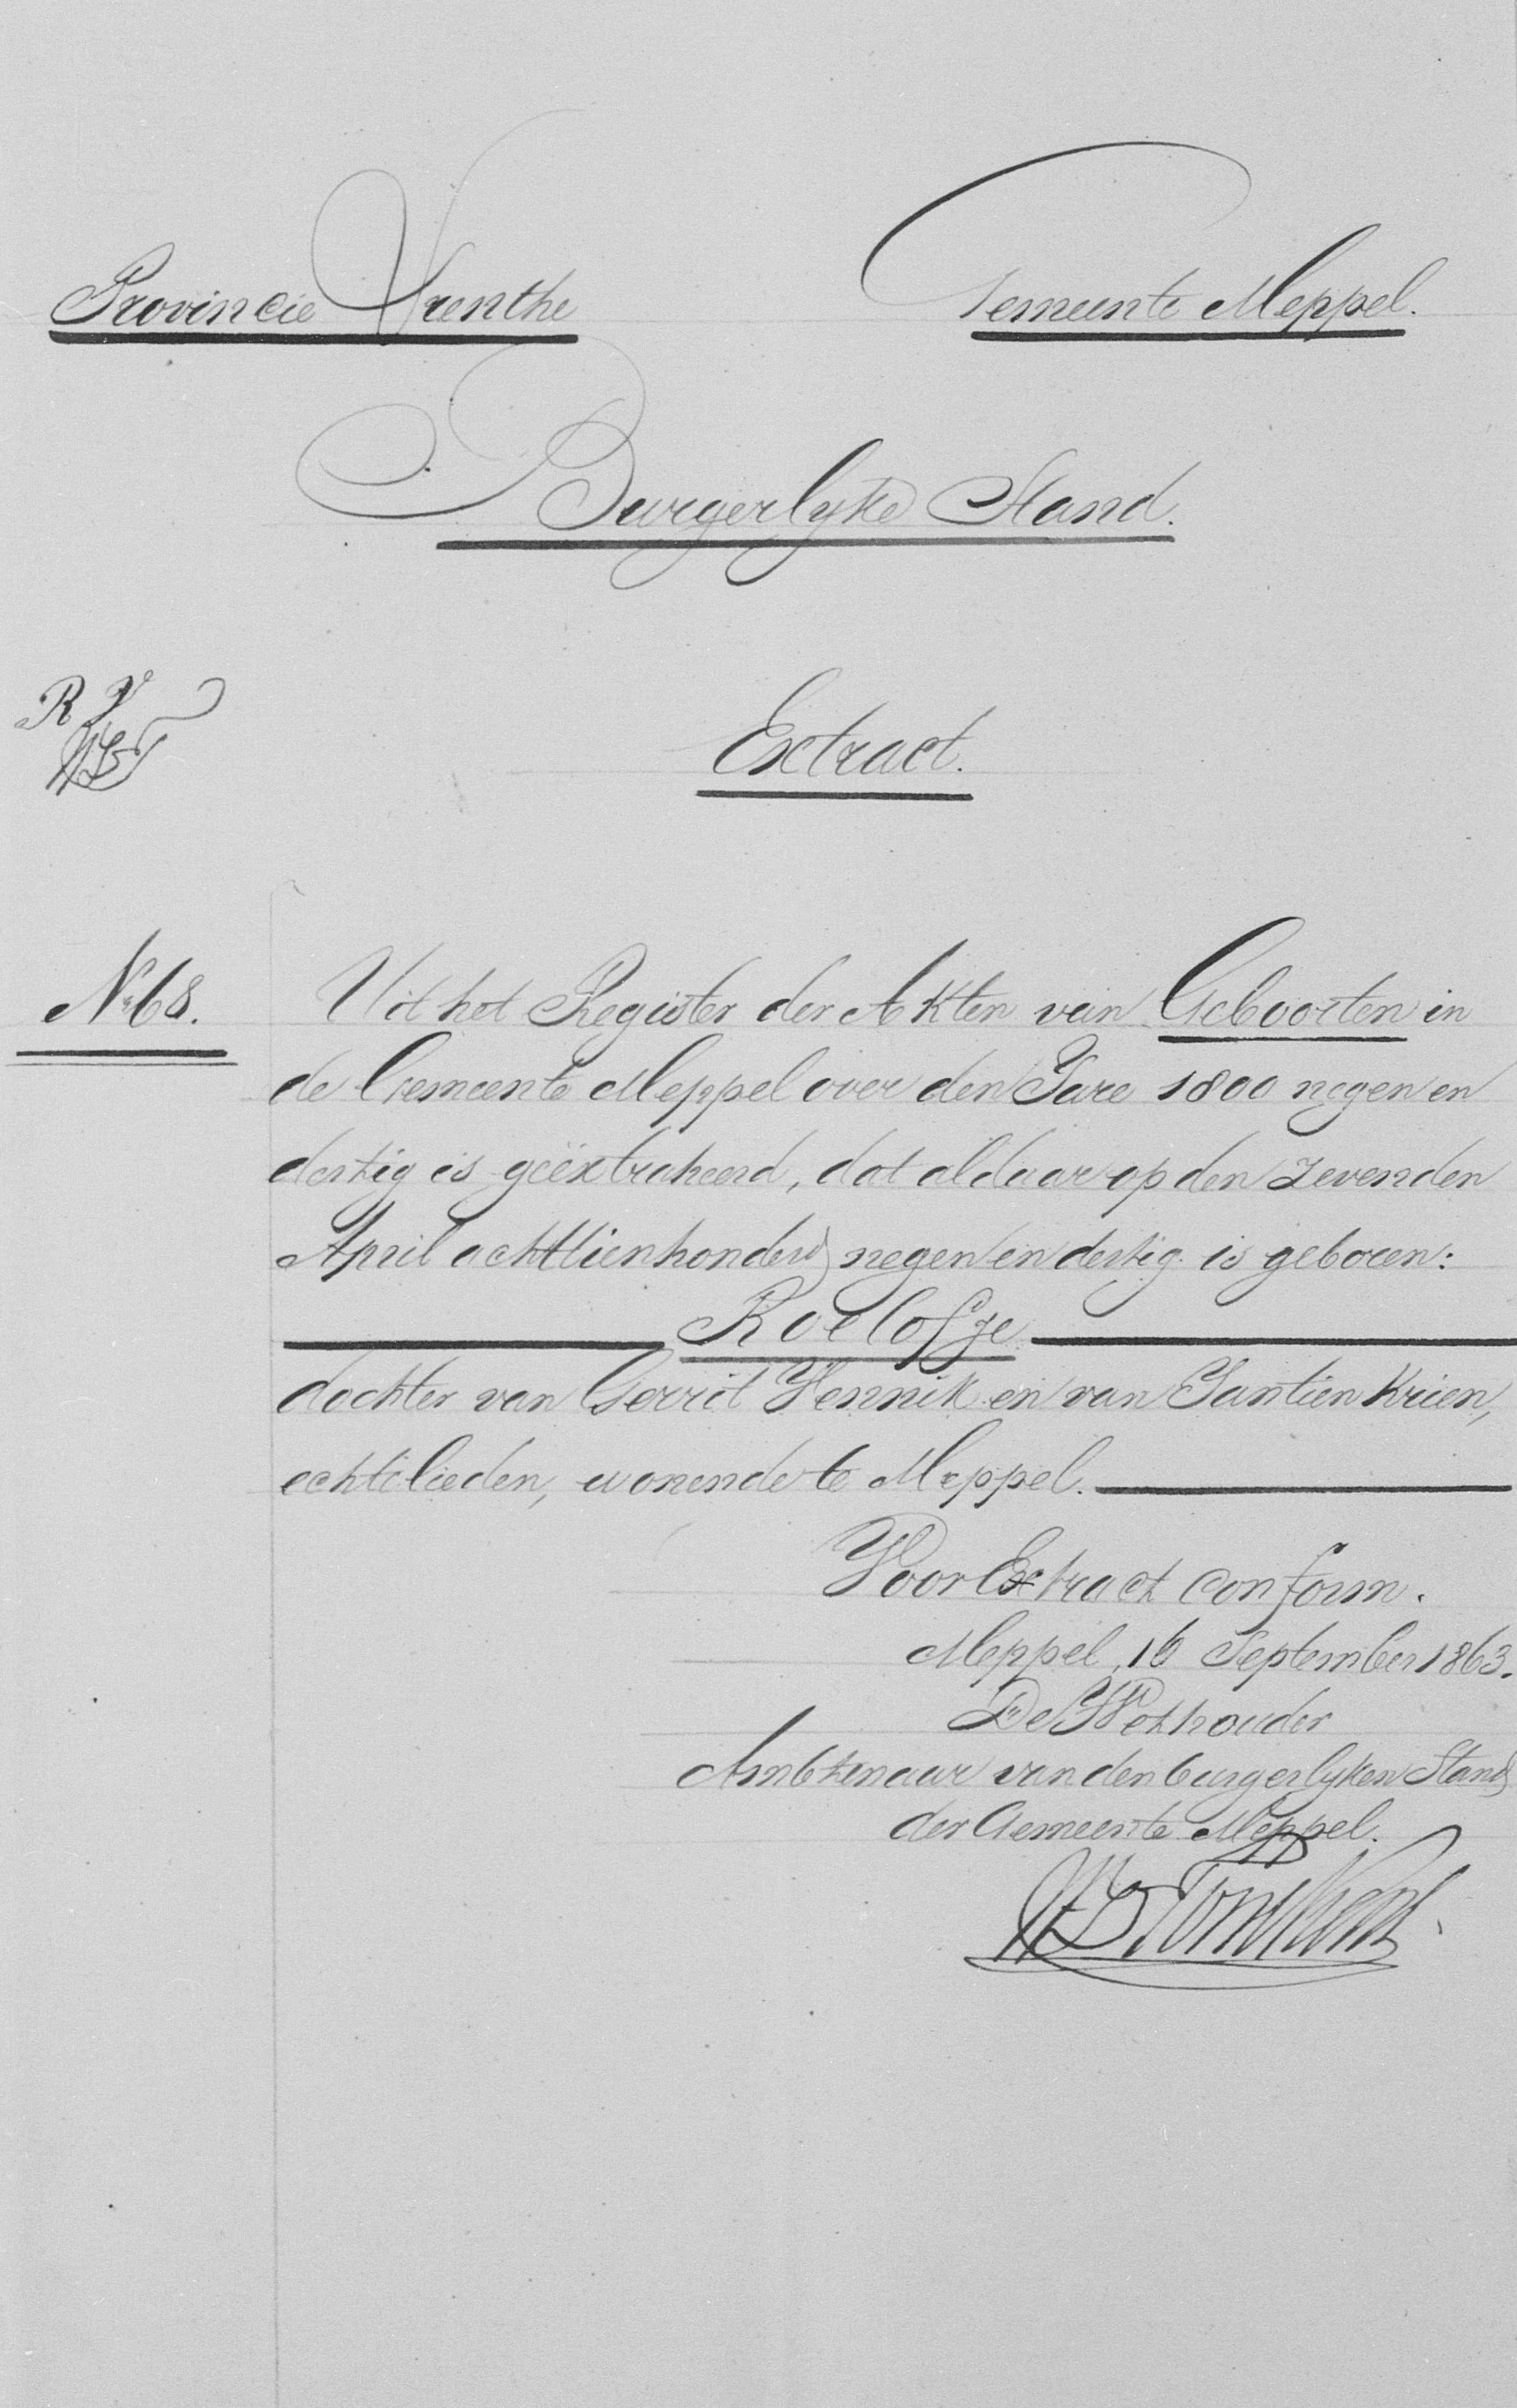 Provincie Drenthe
Gemeente Meppel.
Burgerlyke Stand.
R V
Extract.
No 68.
Uit het Register der Akten van Geboorten in
de Gemeente Meppel over den Jare 1800 negen en
dertig is geëxtraheerd, dat aldaar op den zevenden
April achttienhonderd negen en dertig is geboren:
Roelofje
dochter van Gerrit Vennik en van Jantien Krien,
echtelieden, wonende te Meppel.
Voor Extract conform.
Meppel, 16 September 1863.
De Wethouder
Ambtenaar van den burgerlyken Stand
der Gemeente Meppel.